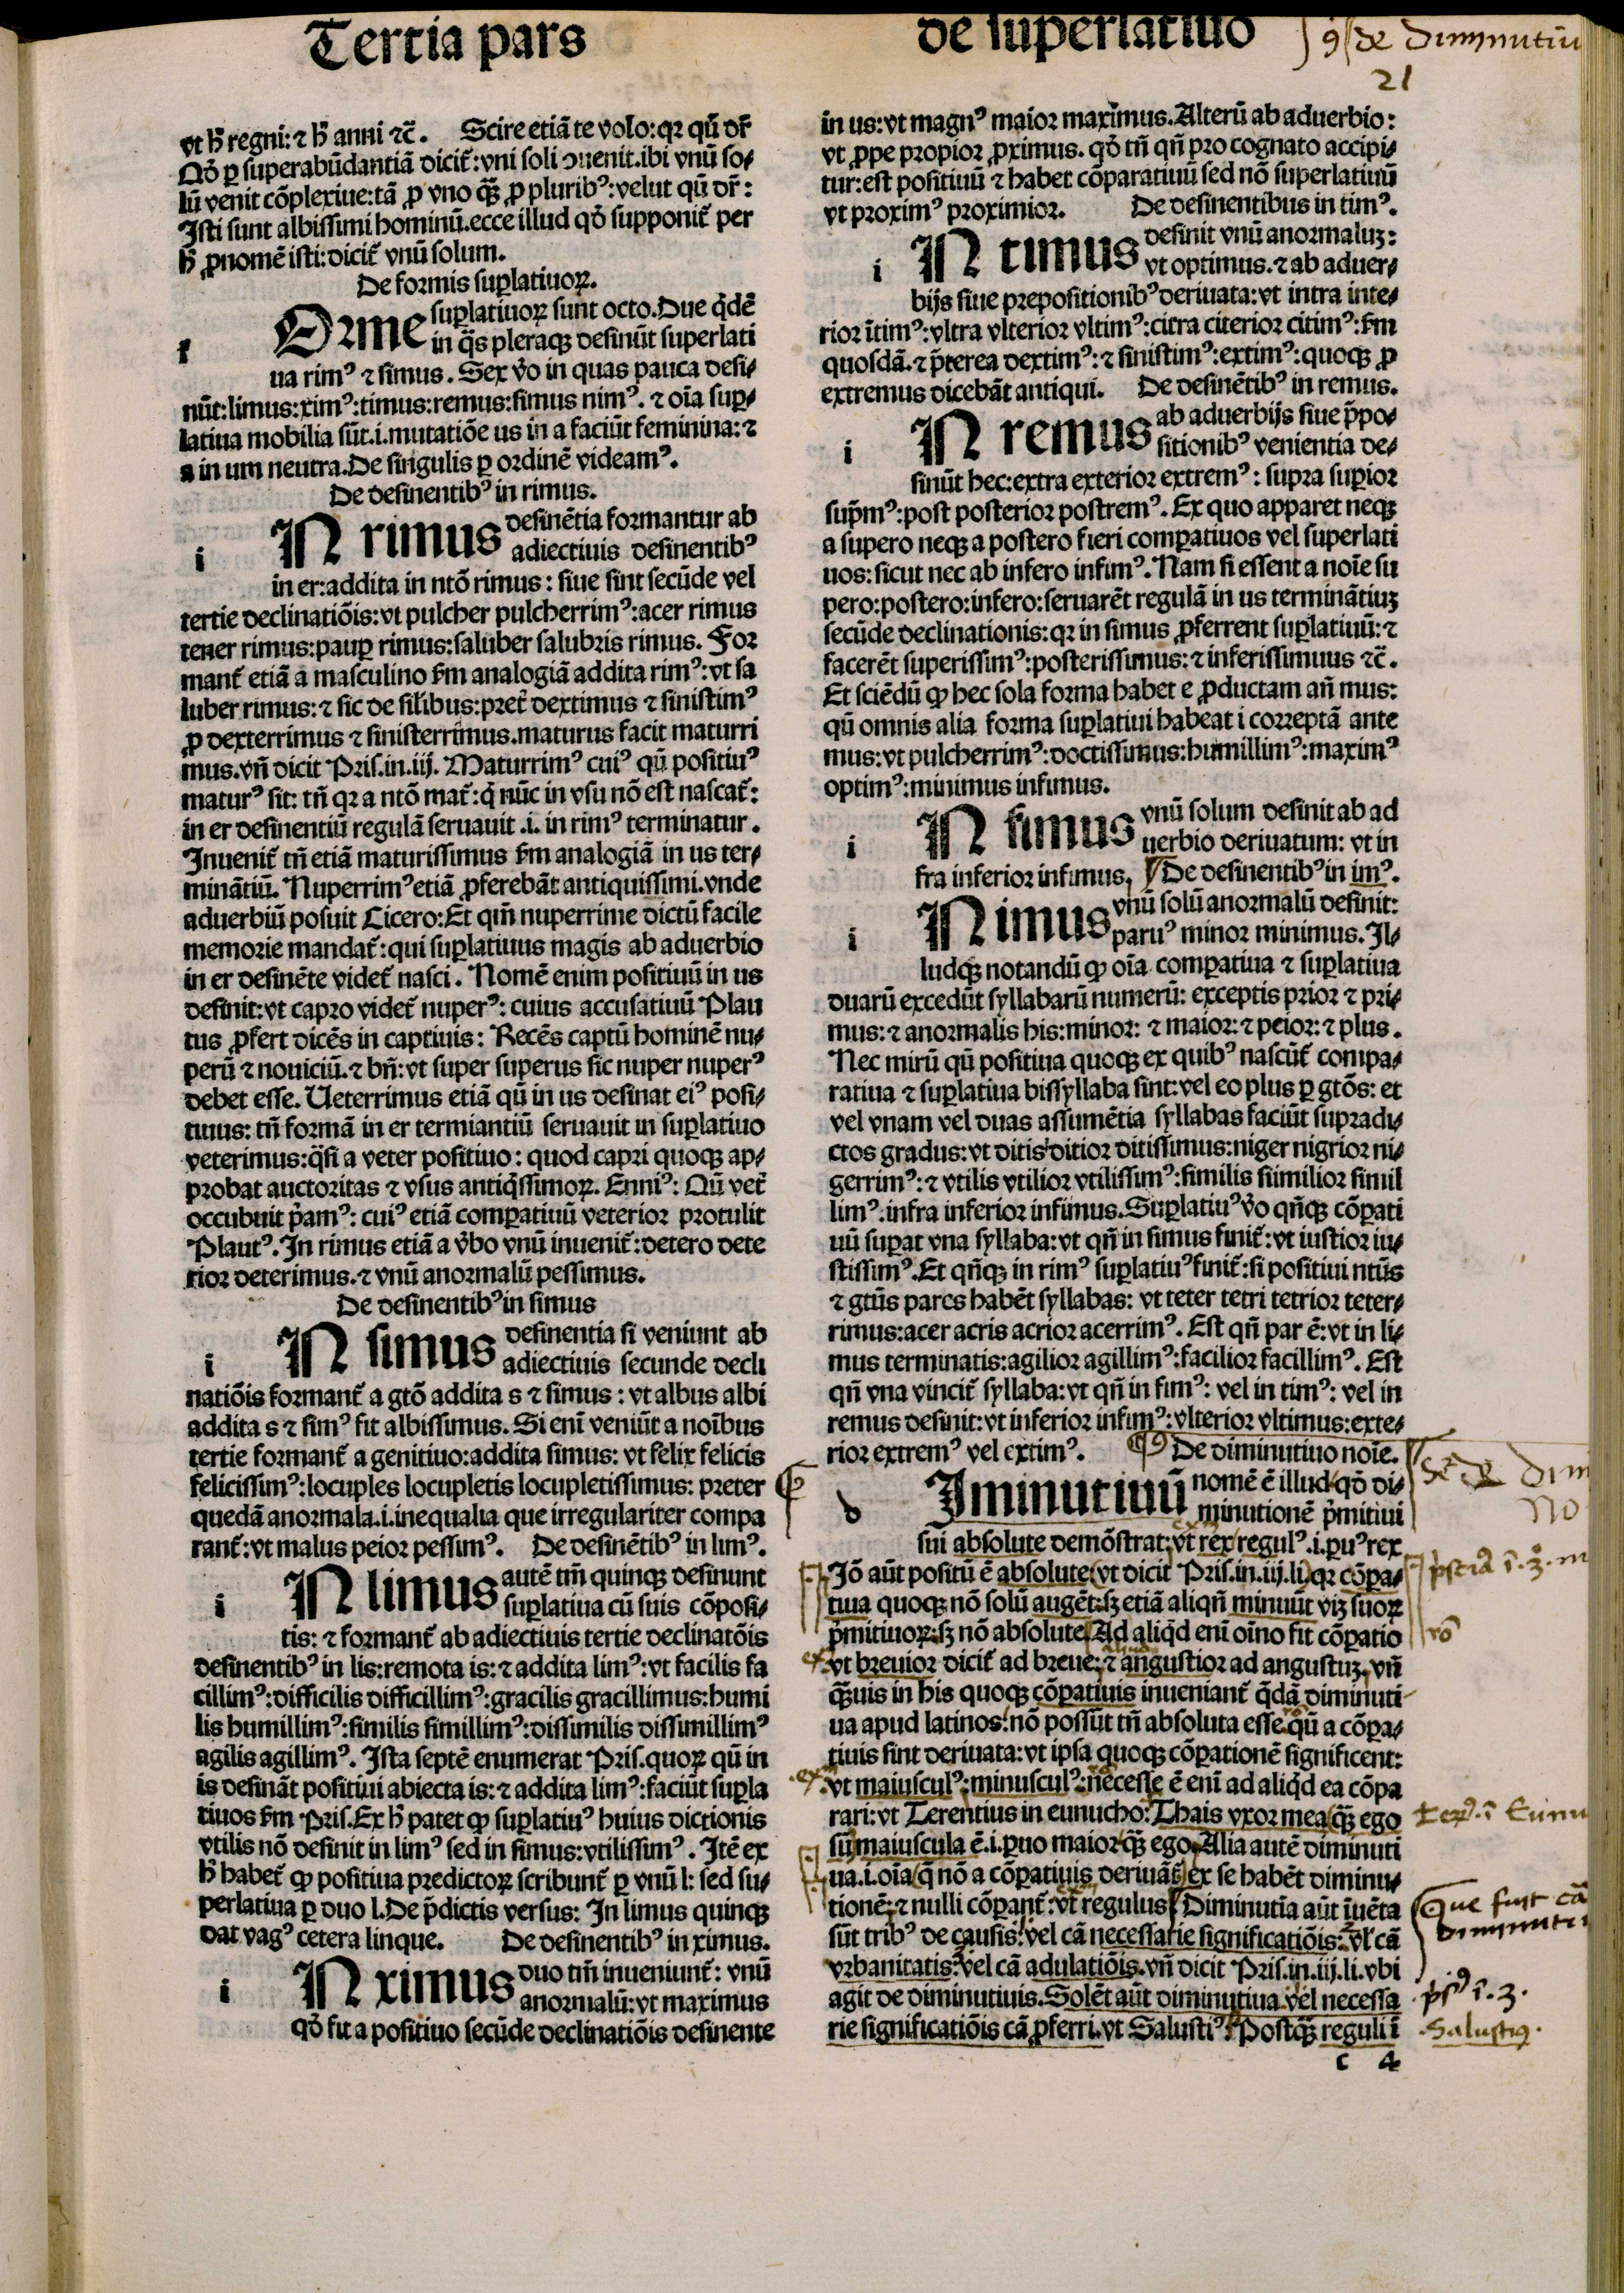 Tertia pars
de superlatiuo
vt hꝰ regni: ⁊ hꝰ anni ⁊c̃. Scire etiã te volo: qꝛ qũ dr̃
Qđ ꝑ superabũdantiã dicit̃: vni soli ↄuenit. ibi vnũ so-
lũ venit cõplexiue: tã ꝓ vno q̃ꝫ ꝓ pluribꝰ: velut qũ dr̃:
Isti sunt albissimi hominũ. ecce illud qđ supponit̃ per
h̃ ꝓnomẽ isti: dicit̃ vnũ solum.
De formis suꝑlatiuoꝝ.
f Orme suꝑlatiuoꝝ sunt octo. Due q̇dẽ
in q̃s pleraqꝫ desinũt superlati
ua rimꝰ ⁊ simus. Sex v̊o in quas pauca desi-
nũt: limus: ximꝰ: timus: remus: fimus nimꝰ. ⁊ oĩa suꝑ-
latiua mobilia sũt. i. mutatiõe us in a faciũt feminina: ⁊
a in um neutra. De singulis ꝑ ordinẽ videamꝰ.
De desinentibꝰ in rimus.
i IN rimus desinẽtia formantur ab
adiectiuis desinentibꝰ
in er: addita in ntõ rimus: siue sint secũde vel
tertie declinatiõis: vt pulcher pulcherrimꝰ: acer rimus
tener rimus: pauꝑ rimus: saluber salubris rimus. For
mant̃ etiã a masculino ẜm analogiã addita rimꝰ: vt sa
luber rimus: ⁊ sic de sil̃ibus: pret̃ dextimus ⁊ sinistimꝰ
ꝓ dexterrimus ⁊ sinisterrimus. maturus facit maturri
mus. vñ dicit Pris. in. iij. Maturrimꝰ cuiꝰ qũ positiuꝰ
maturꝰ sit: tñ qꝛ a ntõ mat̃: q̇ nũc in vsu nõ est nascat̃:
in er desinentiũ regulã seruauit .i. in rimꝰ terminatur.
Inuenit̃ tñ etiã maturissimus ẜm analogiã in us ter-
minãtiũ. Nuperrimꝰ etiã ꝓferebãt antiquissimi. vnde
aduerbiũ posuit Cicero: Et qm̃ nuperrime dictũ facile
memorie mandat̃: qui suꝑlatiuus magis ab aduerbio
in er desinẽte videt̃ nasci. Nomẽ enim positiuũ in us
desinit: vt capro videt̃ nuperꝰ: cuius accusatiuũ Plau
tus ꝓfert dicẽs in captiuis: Recẽs captũ hominẽ nu-
perũ ⁊ nouiciũ. ⁊ bñ: vt super superus sic nuper nuperꝰ
debet esse. Ueterrimus etiã qũ in us desinat eiꝰ posi-
tiuus: tñ formã in er termiantiũ seruauit in suꝑlatiuo
veterimus: q̃si a veter positiuo: quod capri quoqꝫ ap-
probat auctoritas ⁊ vsus antiq̇ssimoꝝ. Enniꝰ: Qũ vet̃
occubuit p̃amꝰ: cuiꝰ etiã comꝑatiuũ veterior protulit
Plautꝰ. In rimus etiã a v̊bo vnũ inuenit̃: detero dete
rior deterimus. ⁊ vnũ anormalũ pessimus.
De desinentibꝰ in simus
i IN simus desinentia si veniunt ab
adiectiuis secunde decli
natiõis formant̃ a gtõ addita s ⁊ simus: vt albus albi
addita s ⁊ simꝰ fit albissimus. Si enĩ veniũt a noĩbus
tertie formant̃ a genitiuo: addita simus: vt felix felicis
felicissimꝰ: locuples locupletis locupletissimus: preter
quedã anormala. i. inequalia que irregulariter compa
rant̃: vt malus peior pessimꝰ. De desinẽtibꝰ in limꝰ.
i IN limus autẽ tm̃ quinqꝫ desinunt
suꝑlatiua cũ suis cõposi-
tis: ⁊ formant̃ ab adiectiuis tertie declinatõis
desinentibꝰ in lis: remota is: ⁊ addita limꝰ: vt facilis fa
cillimꝰ: difficilis difficillimꝰ: gracilis gracillimus: humi
lis humillimꝰ: similis simillimꝰ: dissimilis dissimillimꝰ
agilis agillimꝰ. Ista septẽ enumerat Pris. quoꝝ qũ in
is desinãt positiui abiecta is: ⁊ addita limꝰ: faciũt suꝑla
tiuos ẜm Pris. Ex h̃ patet ꝙ suꝑlatiuꝰ huius dictionis
vtilis nõ desinit in limꝰ sed in simus: vtilissimꝰ. Itẽ ex
h̃ habet̃ ꝙ positiua predictoꝝ scribunt̃ ꝑ vnũ l: sed su-
perlatiua ꝑ duo l. De p̃dictis versus: In limus quinqꝫ
dat vagꝰ cetera linque. De desinentibꝰ in ximus.
i IN ximus duo tm̃ inueniunt̃: vnũ
anormalũ: vt maximus
qđ fit a positiuo secũde declinatiõis desinente
in us: vt magnꝰ maior maximus. Alterũ ab aduerbio:
vt ꝓpe propior ꝓximus. qđ tñ qñ pro cognato accipi-
tur: est positiuũ ⁊ habet cõparatiuũ sed nõ superlatiuũ
vt proximꝰ proximior. De desinentibus in timꝰ.
i IN timus desinit vnũ anormaluꝫ:
vt optimus. ⁊ ab aduer-
bijs siue prepositionibꝰ deriuata: vt intra inte-
rior ĩtimꝰ: vltra vlterior vltimꝰ: citra citerior citimꝰ: ẜm
quosdã. ⁊ p̃terea dextimꝰ: ⁊ sinistimꝰ: extimꝰ: quoqꝫ ꝓ
extremus dicebãt antiqui. De desinẽtibꝰ in remus.
i IN remus ab aduerbijs siue p̃po-
sitionibꝰ venientia de-
sinũt hec: extra exterior extremꝰ: supra suꝑior
sup̃mꝰ: post posterior postremꝰ. Ex quo apparet neqꝫ
a supero neqꝫ a postero fieri comꝑatiuos vel superlati
uos: sicut nec ab infero infimꝰ. Nam si essent a noĩe su
pero: postero: infero: seruarẽt regulã in us terminãtiuꝫ
secũde declinationis: qꝛ in simus ꝓferrent suꝑlatiuũ: ⁊
facerẽt superissimꝰ: posterissimus: ⁊ inferissimuus ⁊c̃.
Et sciẽdũ ꝙ hec sola forma habet e ꝓductam añ mus:
qũ omnis alia forma suꝑlatiui habeat i correptã ante
mus: vt pulcherrimꝰ: doctissimus: humillimꝰ: maximꝰ
optimꝰ: minimus infimus.
i IN fimus vnũ solum desinit ab ad
uerbio deriuatum: vt in
fra inferior infimus. De desinentibꝰ in imꝰ.
i Nimus vnũ solũ anormalũ desinit:
paruꝰ minor minimus. Il-
ludqꝫ notandũ ꝙ oĩa comꝑatiua ⁊ suꝑlatiua
duarũ excedũt syllabarũ numerũ: exceptis prior ⁊ pri-
mus: ⁊ anormalis his: minor: ⁊ maior: ⁊ peior: ⁊ plus.
Nec mirũ qũ positiua quoqꝫ ex quibꝰ nascũt̃ compa-
ratiua ⁊ suꝑlatiua bissyllaba sint: vel eo plus ꝑ gtõs: et
vel vnam vel duas assumẽtia syllabas faciũt supradi-
ctos gradus: vt ditis ditior ditissimus: niger nigrior ni-
gerrimꝰ: ⁊ vtilis vtilior vtilissimꝰ: similis similior simil
limꝰ: infra inferior infimus. Suꝑlatiuꝰ v̊o qñqꝫ cõꝑati
uũ suꝑat vna syllaba: vt qñ in simus finit̃: vt iustior iu-
stissimꝰ. Et qñqꝫ in rimꝰ suꝑlatiuꝰ finit̃: si positiui ntũs
⁊ gtũs pares habẽt syllabas: vt teter tetri tetrior teter-
rimus: acer acris acrior acerrimꝰ. Est qñ par ẽ: vt in li-
mus terminatis: agilior agillimꝰ: facilior facillimꝰ. Est
qñ vna vincit̃ syllaba: vt qñ in fimꝰ: vel in timꝰ: vel in
remus desinit: vt inferior infimꝰ: vlterior vltimus: exte-
rior extremꝰ vel extimꝰ. De diminutiuo noĩe.
d Iminutiuũ nomẽ ẽ illud qđ di-
minutionẽ p̃mitiui
sui absolute demõstrat: vt rex regulꝰ. i. ꝑuꝰ rex
Iõ aũt positũ ẽ absolute vt dicit Pris. in. iij. li. qꝛ cõpa-
tiua quoqꝫ nõ solũ augẽt: sꝫ etiã aliqñ minuũt viꝫ suoꝝ
p̃mitiuoꝝ: sꝫ nõ absolute. Ad aliq̇d enĩ oĩno fit cõꝑatio
vt breuior dicit̃ ad breue: ⁊ angustior ad angustuꝫ. vñ
q̃ꝫuis in his quoqꝫ cõꝑatiuis inueniant̃ q̇dã diminuti
ua apud latinos: nõ possũt tñ absoluta esse qũ a cõpa-
tiuis sint deriuata: vt ipsa quoqꝫ cõꝑationẽ significent:
vt maiusculꝰ: minusculꝰ: necesse ẽ enĩ ad aliq̇d ea cõpa
rari: vt Terentius in eunucho: Thais vxor mea q̃ꝫ ego
sũ maiuscula ẽ. i. ꝑuo maior q̃ꝫ ego. Alia autẽ diminuti
ua. i. oĩa q̃ nõ a cõꝑatiuis deriuãt̃ ex se habẽt diminu-
tionẽ: ⁊ nulli cõꝑant̃: vt regulus. Diminutĩa aũt ĩuẽta
sũt tribꝰ de causis: vel cã necessarie significatiõis: vl̃ cã
vrbanitatis: vel cã adulatiõis. vñ dicit Pris. in. iij. li. vbi
agit de diminutiuis. Solẽt aũt diminutiua vel necessa
rie significatiõis cã ꝓferri. vt Salustiꝰ: Postq̃ꝫ reguli ĩ
c 4
21
Salustiꝰ